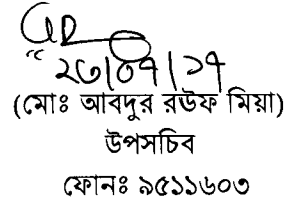 ২৩/০৭/১৭
(মোঃ আবদুর রউফ মিয়া)
উপসচিব
ফোনঃ ৯৫১১৬০৩